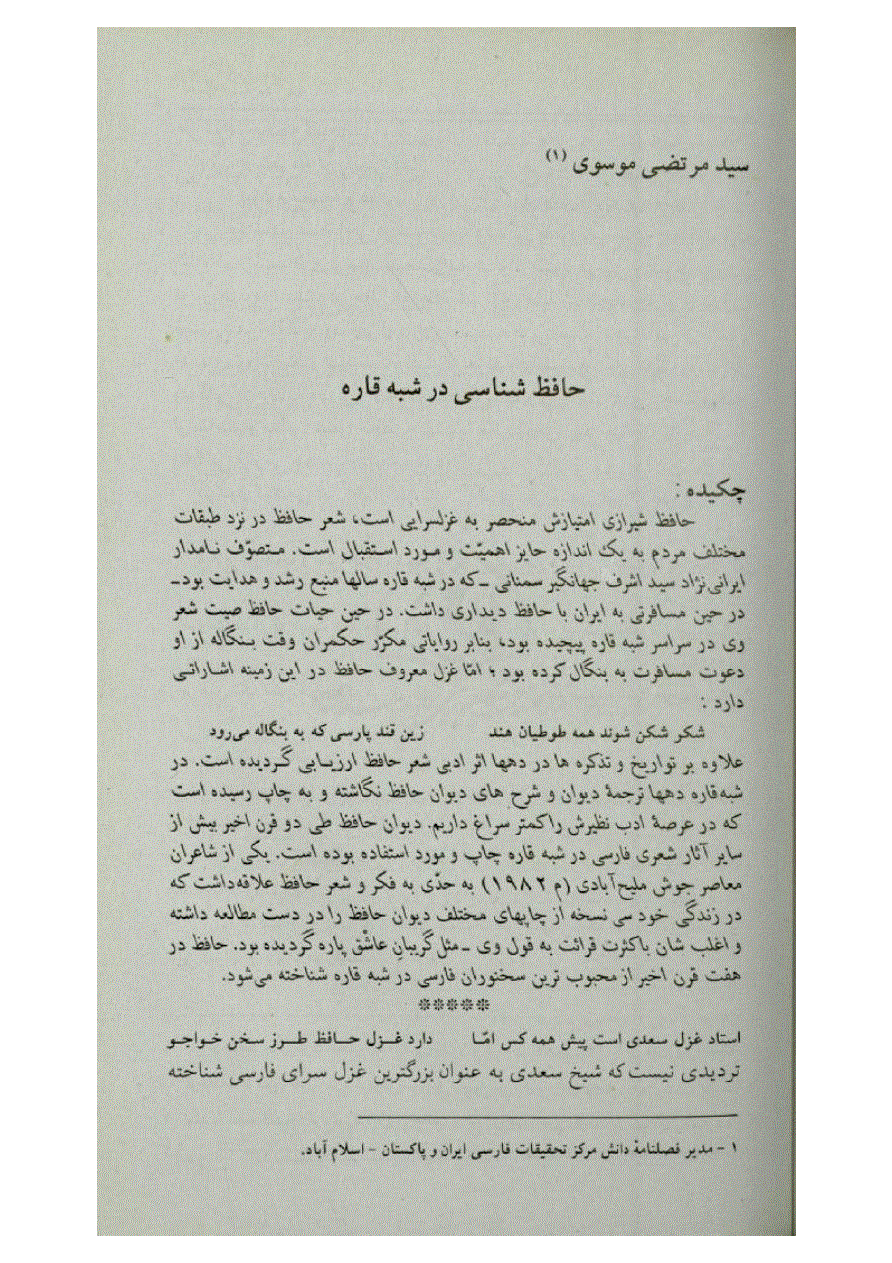 سید مرتضی موسوی (۱)
حافظ شناسی در شبه قاره
چکیده :
حافظ شیرازی امتیازش منحصر به غزلسرایی است، شعر حافظ در نزد طبقات
مختلف مردم به یک اندازه حایز اهمیّت و مورد استقبال است. متصوّف نامدار
ایرانی‌نژاد سید اشرف جهانگیر سمنانی ـ که در شبه قاره سالها منبع رشد و هدایت بود ـ
در حین مسافرتی به ایران با حافظ دیداری داشت. در حین حیات حافظ صیت شعر
ری در سراسر شبه قاره پیچیده بود، بنابر روایاتی مکرّر حکمران وقت بنگاله از او
دعوت مسافرت به بنگال کرده بود ؛ امّا غزل معروف حافظ در این زمینه اشاراتی
دارد :
شکر شکن شوند همه طوطیان هند زین قند پارسی که به بنگاله می‌رود
علاوه بر تواریخ و تذکره ها در دهها اثر ادبی شعر حافظ ارزیابی گردیده است. در
شبه‌قاره دهها ترجمهٔ دیوان و شرح های دیوان حافظ نگاشته و به چاپ رسیده است
که در عرصهٔ ادب نظیرش را کمتر سراغ داریم. دیوان حافظ طی دو قرن اخیر بیش از
سایر آثار شعری فارسی در شبه قاره چاپ و مورد استفاده بوده است. یکی از شاعران
معاصر جوش ملیح‌آبادی (م ۱۹۸۲) به حدّی به فکر و شعر حافظ علاقه‌داشت که
در زندگی خود سی نسخه از چاپهای مختلف دیوان حافظ را در دست مطالعه داشته
و اغلب شان باکثرت قرائت به قول وی ـ مثل گریبانِ عاشق پاره گردیده بود. حافظ در
هفت قرن اخیر از محبوب ترین سخنوران فارسی در شبه قاره شناخته می‌شود.
*****
استاد غزل سعدی است پیش همه کس امّا دارد غزل حافظ طرز سخن خواجو
تردیدی نیست که شیخ سعدی به عنوان بزرگترین غزل سرای فارسی شناخته
۱ - مدیر فصلنامهٔ دانش مرکز تحقیقات فارسی ایران و پاکستان - اسلام آباد.